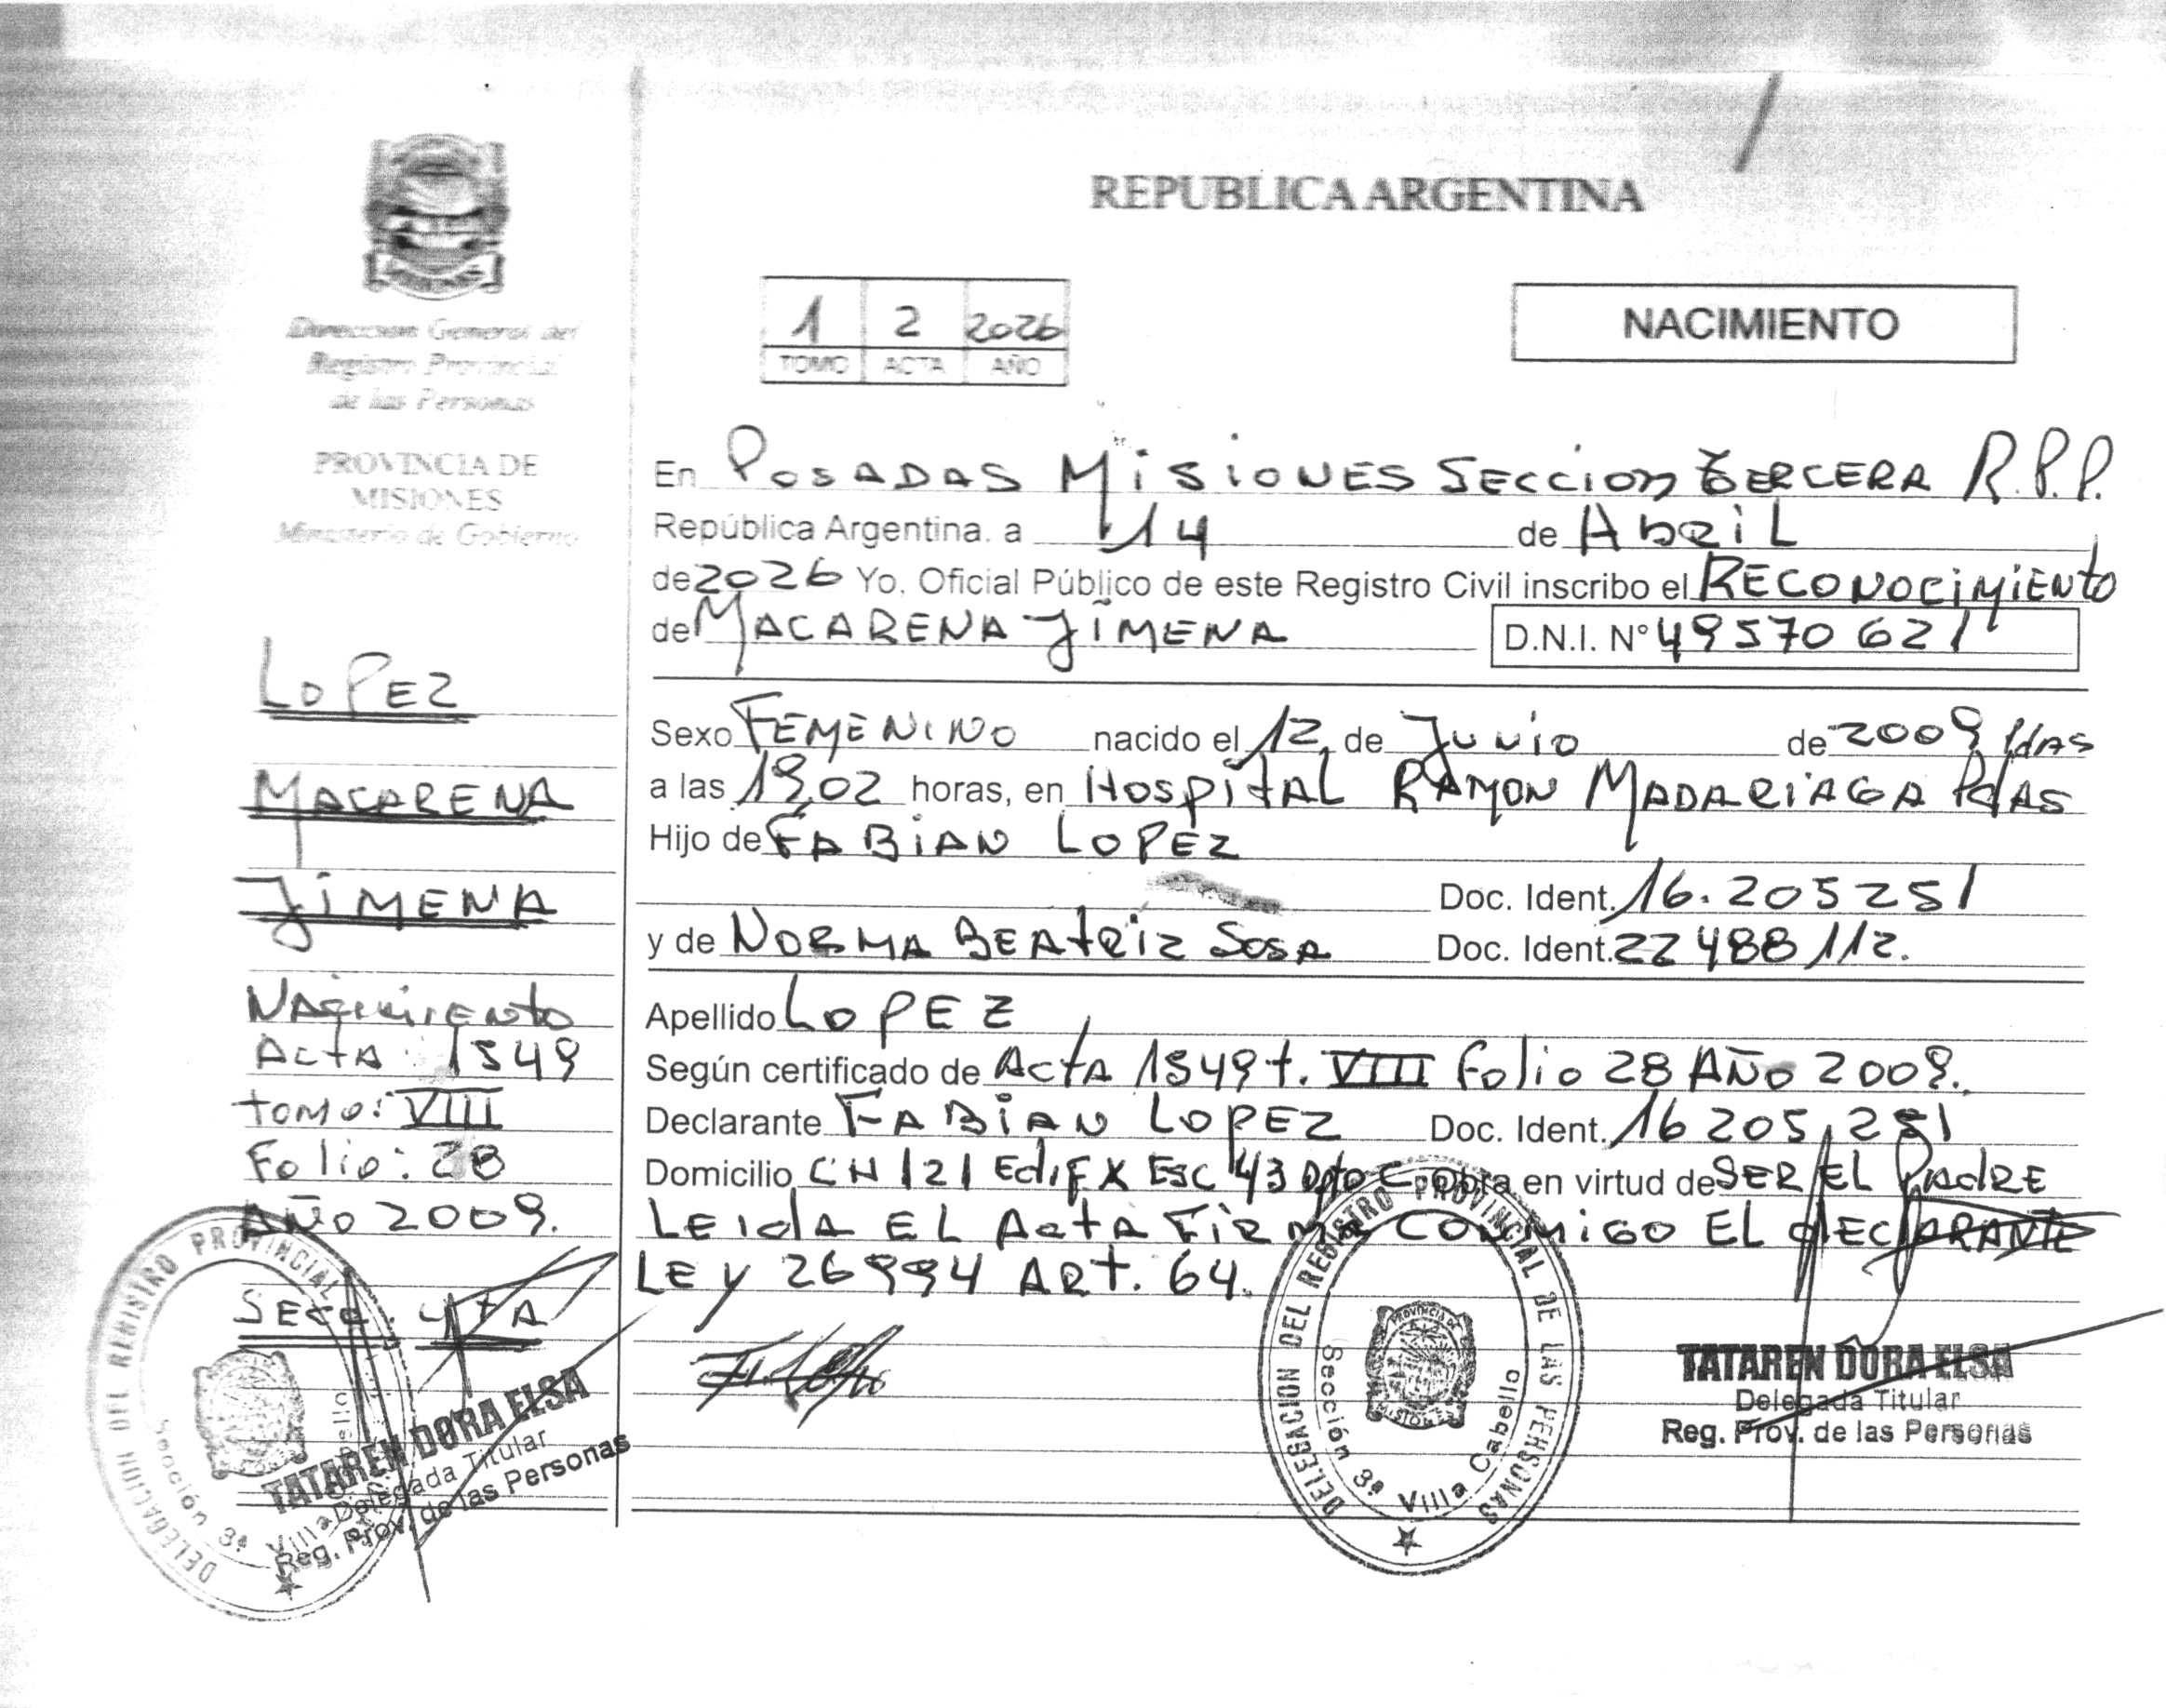 REPUBLICA ARGENTINA
Direccion General del
Registro Provincial
de las Personas
PROVINCIA DE
MISIONES
Ministerio de Gobierno
1 2 2026
TOMO ACTA AÑO
NACIMIENTO
En POSADAS MISIONES SECCION TERCERA R.P.P.
República Argentina. a 14 de AbRiL
de 2026 Yo, Oficial Público de este Registro Civil inscribo el RECONOCIMIENTO
de MACARENA JIMENA D.N.I. N° 49570621
Sexo FEMENINO nacido el 12 de JUNIO de 2009 Pdas
a las 19,02 horas, en HOSPITAL RAMON MADARIAGA PdAS
Hijo de FABIAN LOPEZ
Doc. Ident. 16.205251
y de NORMA BEATRIZ SOSA Doc. Ident. 22488112.
Apellido LOPEZ
Según certificado de ActA 1549 t. VIII Folio 28 AÑO 2009.
Declarante FABIAN LOPEZ Doc. Ident. 16205,251
Domicilio CH 121 Edif X Esc 43 Dpto C obra en virtud de SER EL PADRE
LEIDA EL ACTA FIRMA CONMIGO EL DECLARANTE
LEY 26994 ART. 64.
LOPEZ
MACARENA
JIMENA
NACIMIENTO
ACTA: 1549
tomo: VIII
Folio: 28
AÑO 2009.
SECC. 4TA
DELEGACION DEL REGISTRO PROVINCIAL
Sección 3ª Villa Cabello
TATAREN DORA ELSA
Delegada Titular
Reg. Prov. de las Personas
DELEGACION DEL REGISTRO PROVINCIAL DE LAS PERSONAS
Sección 3ª Villa Cabello
PROVINCIA DE
MISIONES
TATAREN DORA ELSA
Delegada Titular
Reg. Prov. de las Personas